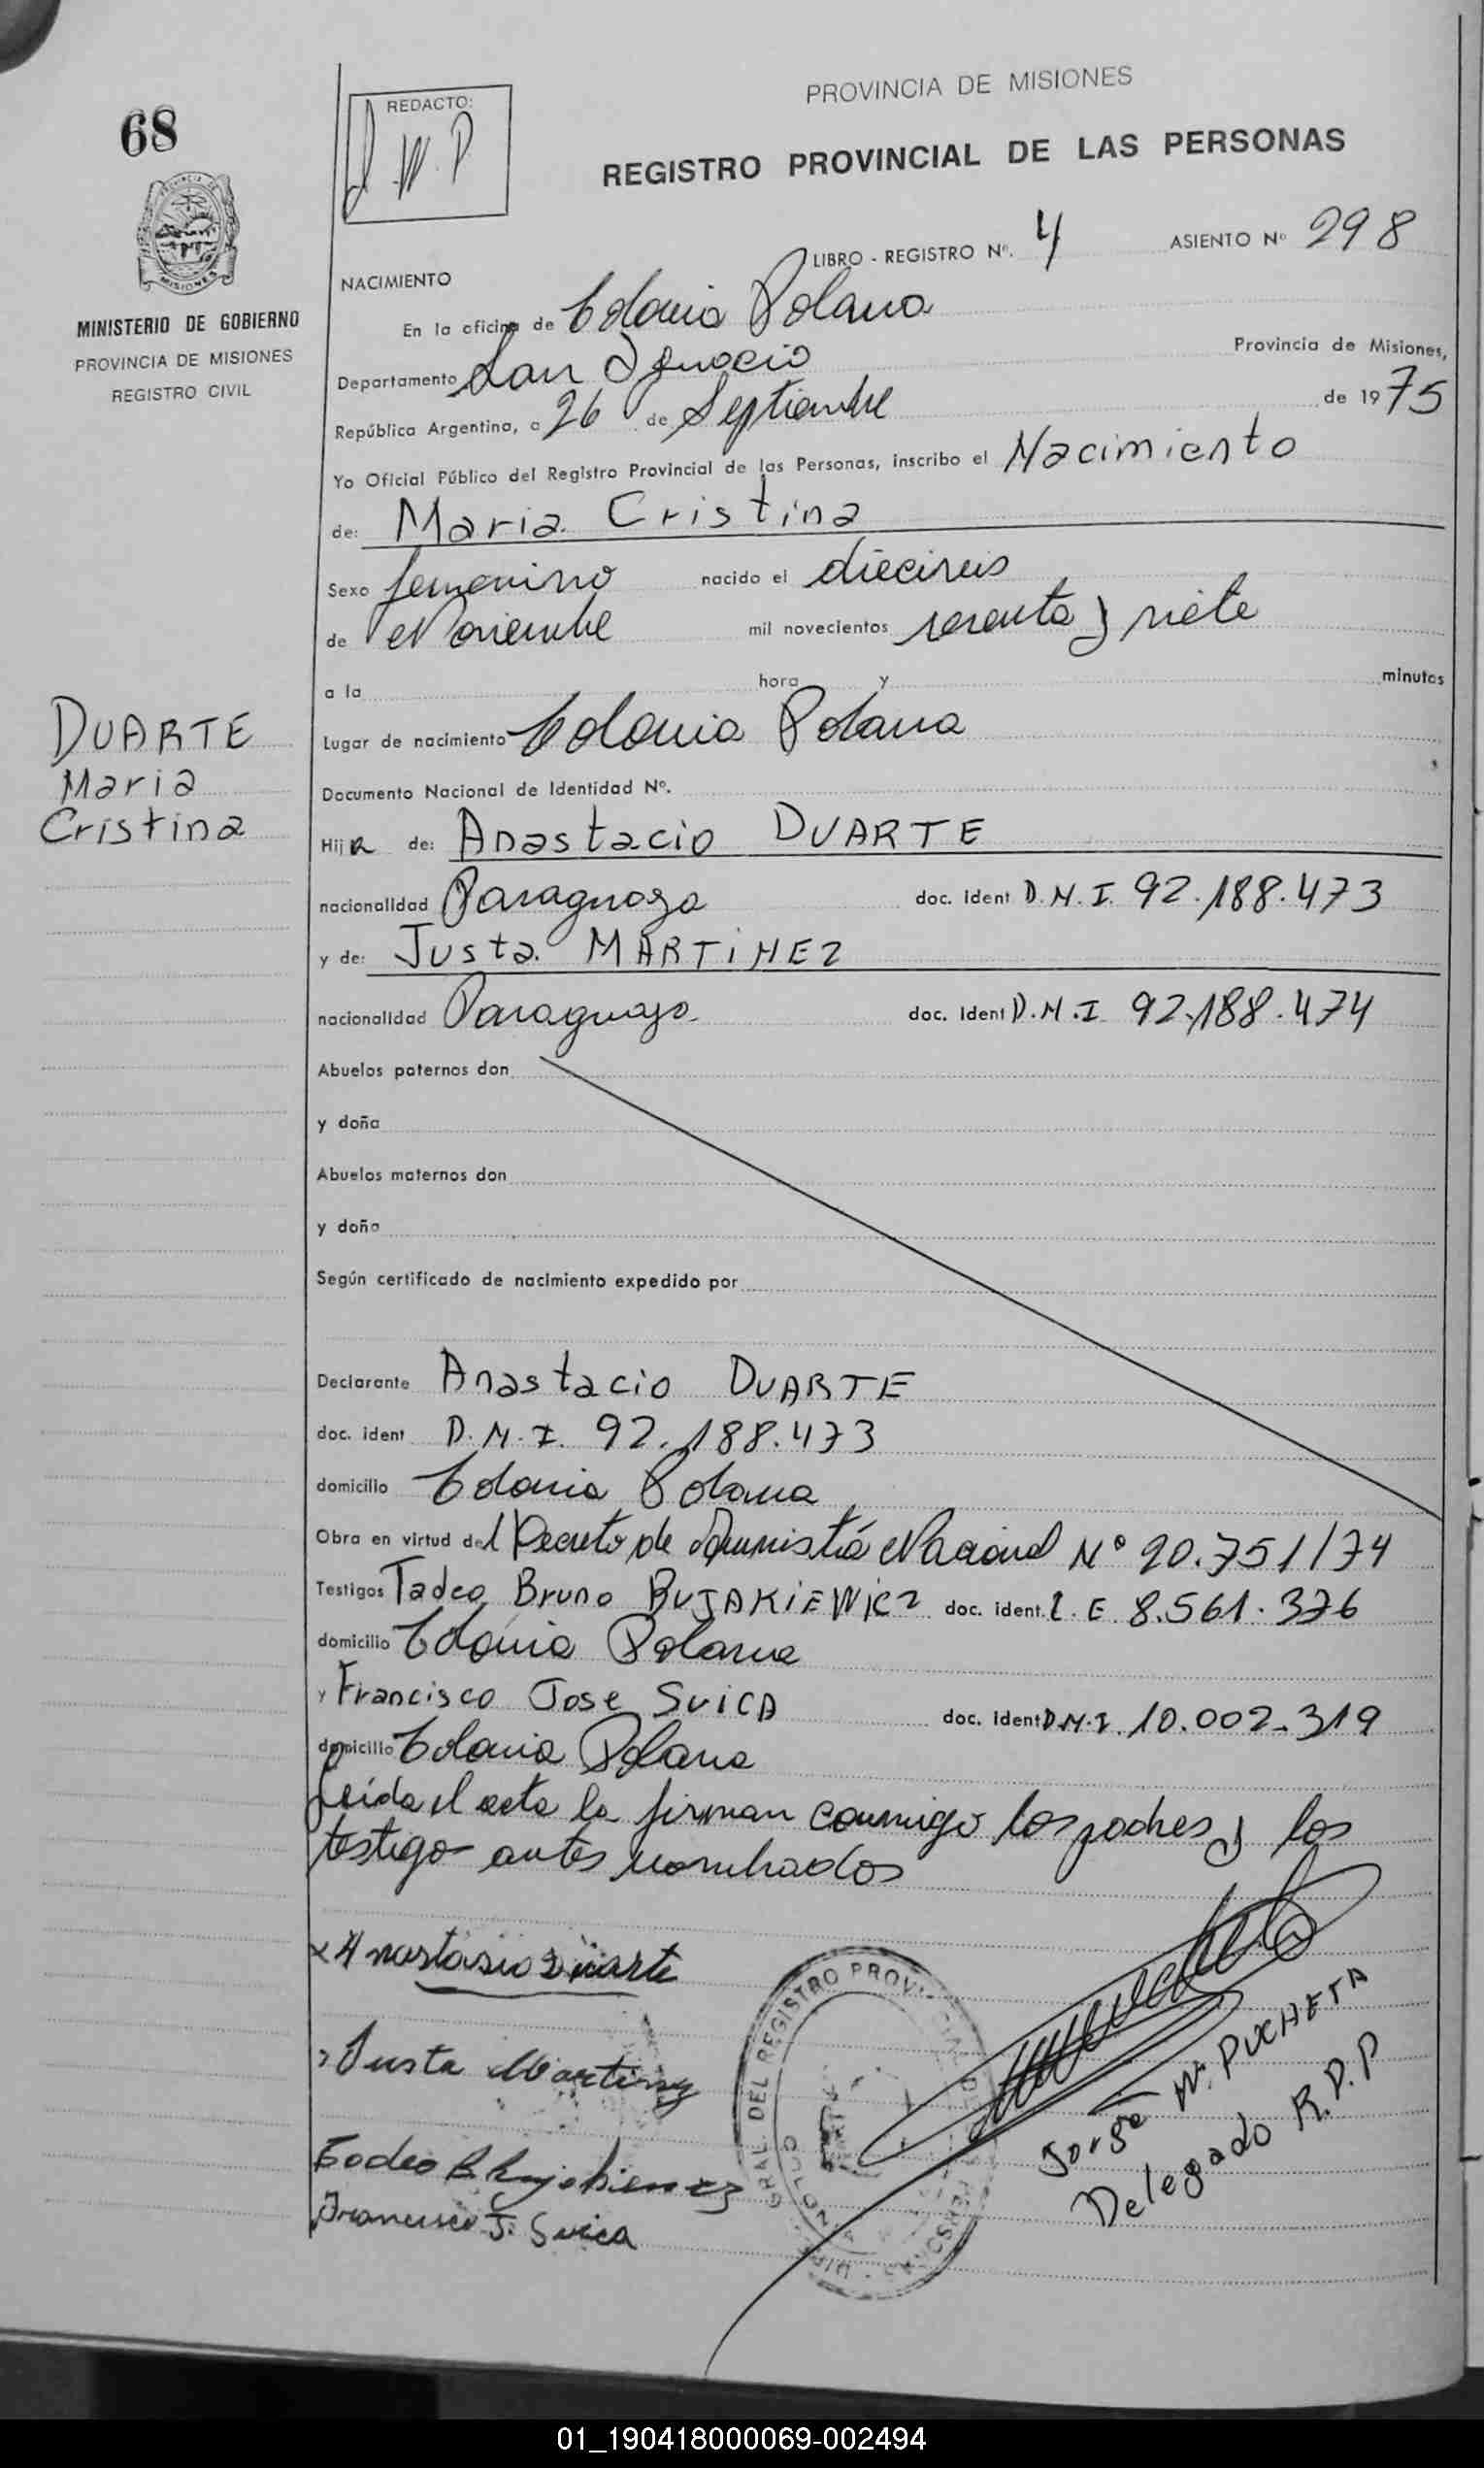 PROVINCIA DE MISIONES
68
REDACTO:
J.W.P
REGISTRO PROVINCIAL DE LAS PERSONAS
LIBRO - REGISTRO Nº. 4 ASIENTO Nº 298
NACIMIENTO
MINISTERIO DE GOBIERNO
PROVINCIA DE MISIONES
REGISTRO CIVIL
En la oficina de Colonia Polana
Departamento San Ignacio Provincia de Misiones,
República Argentina, a 26 de Septiembre de 1975
Yo Oficial Público del Registro Provincial de las Personas, inscribo el Nacimiento
de: Maria Cristina
Sexo femenino nacido el dieciseis
de Noviembre mil novecientos sesenta y siete
a la hora y minutos
DUARTE
Maria
Cristina
Lugar de nacimiento Colonia Polana
Documento Nacional de Identidad Nº.
Hija de: Anastacio DUARTE
nacionalidad Paraguaya doc. ident D.N.I. 92.188.473
y de: Justa MARTINEZ
nacionalidad Paraguaya doc. ident D.N.I 92.188.474
Abuelos paternos don
y doña
Abuelos maternos don
y doña
Según certificado de nacimiento expedido por
Declarante Anastacio DUARTE
doc. ident D.N.I. 92.188.473
domicilio Colonia Polana
Obra en virtud del Decreto de Nacional Nº 20.751/74
Testigos Tadeo Bruno BUJAKIEWICZ doc. ident. L.E 8.561.376
domicilio Colonia Polana
y Francisco Jose SUICA doc. ident D.N.I. 10.002.319
domicilio Colonia Polana
Leida el acta la firman conmigo los padres y los
testigos antes nombrados
x Anastasio Duarte
Justa Martinez
Tadeo B
Francisco J. Suica
GRAL. DEL REGISTRO PROVINCIAL
Jorge W. PUCHETA
Delegado R.P.P
01_190418000069-002494